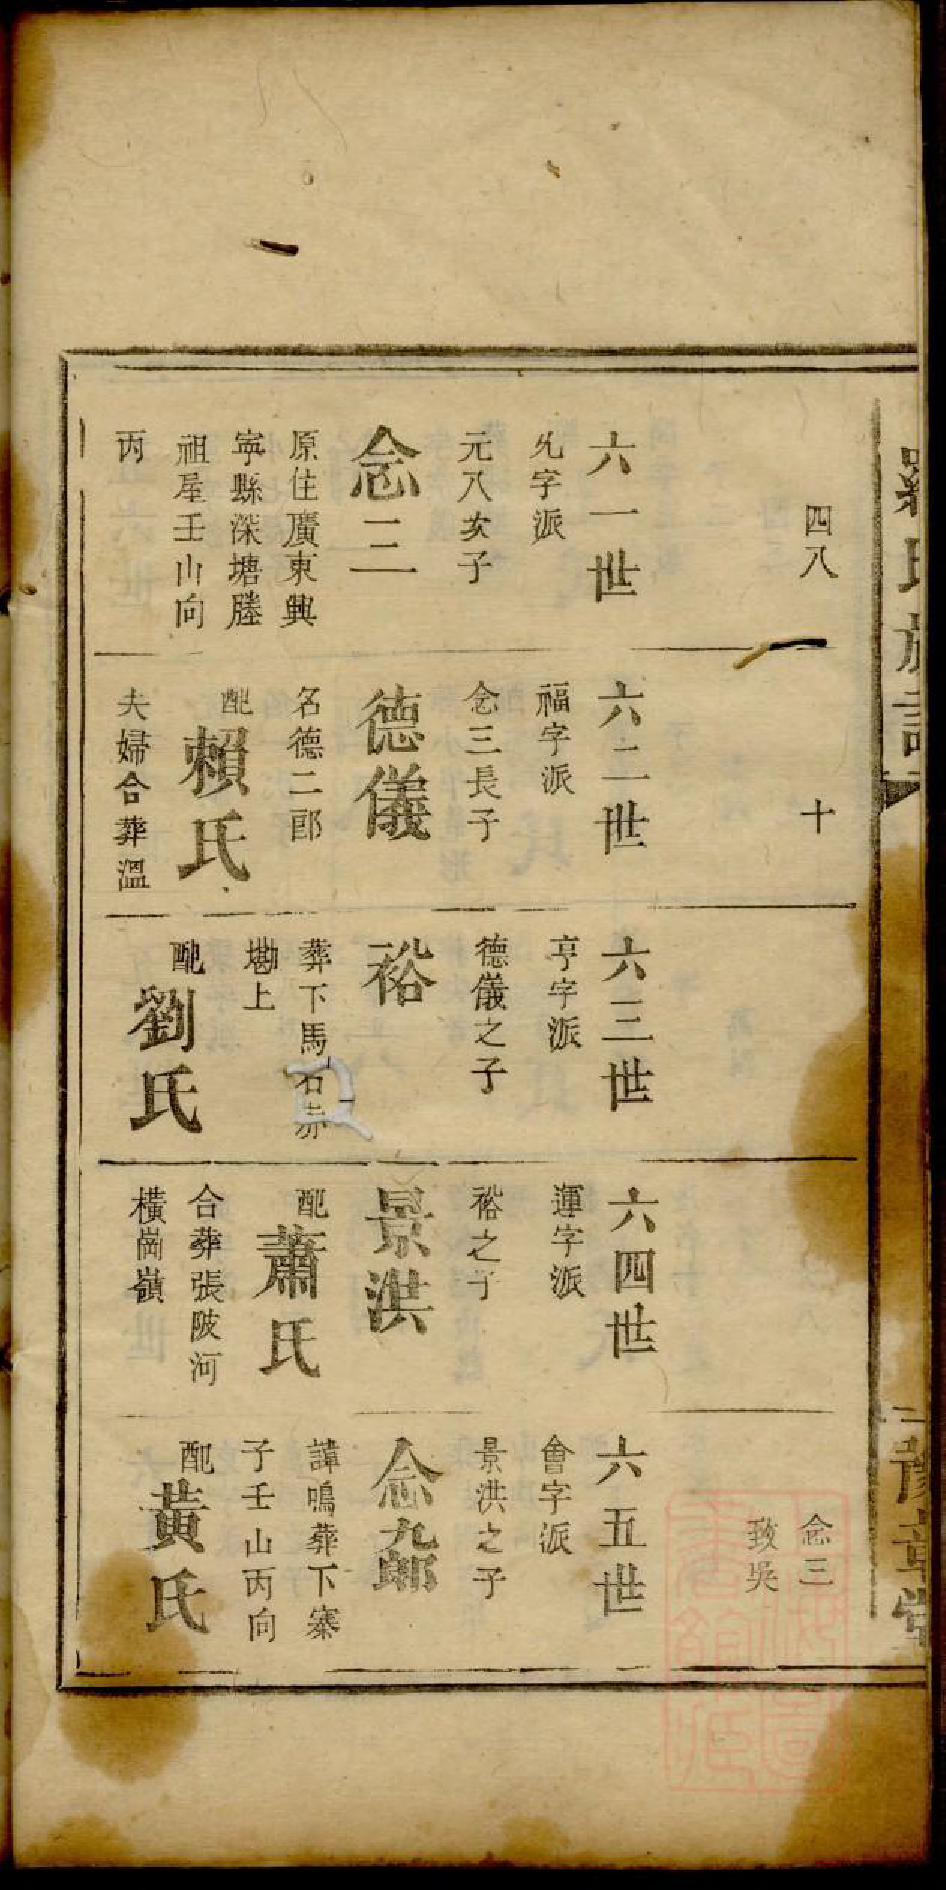 羅氏族譜
豫章堂
四八
十
念三
致吳
六一世
允字派
元八亥子
念三
原住廣東興
寧縣深塘塍
祖屋壬山向
丙
六二世
福字派
念三長子
德儀
名德二郎
配賴氏
夫婦合葬溫
六三世
亨字派
德儀之子
裕
葬下馬石赤
墈上
配劉氏
六四世
運字派
裕之子
景洪
配蕭氏
合葬張陂河
橫崗嶺
六五世
會字派
景洪之子
念九郎
諱鳴葬下寨
子壬山丙向
配黃氏